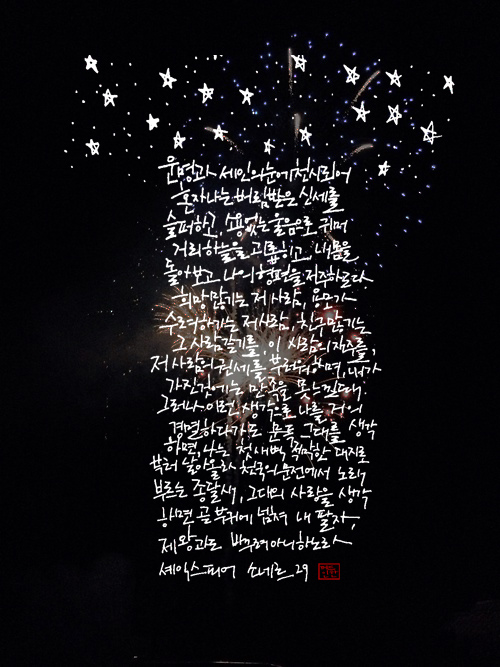 운명과 세인의 눈에 천시되어
혼자 나는 버림받은 신세를
슬퍼하고, 소용없는 울음으로 귀머
거리 하늘을 괴롭히고, 내 몸을
돌아보고, 나의 형편을 저주하도다
희망 많기는 저 사람, 용모가
수려하기는 저 사람, 친구 많기는
그 사람 같기를, 이 사람의 재주를,
저 사람의 권세를 부러워하며, 내가
가진 것에는 만족을 못 느낀다.
그러나 이런 생각으로 나를 거의
경멸하다가도 문득 그대를 생각
하면, 나는 첫 새벽 적막한 대지로
부터 날아올라 천국의 문전에서 노래
부르는 종달새, 그대의 사랑을 생각
하면 곧 부귀에 넘쳐 내 팔자,
제왕과도 바꾸려 아니하노라
셰익스피어 소네트 29